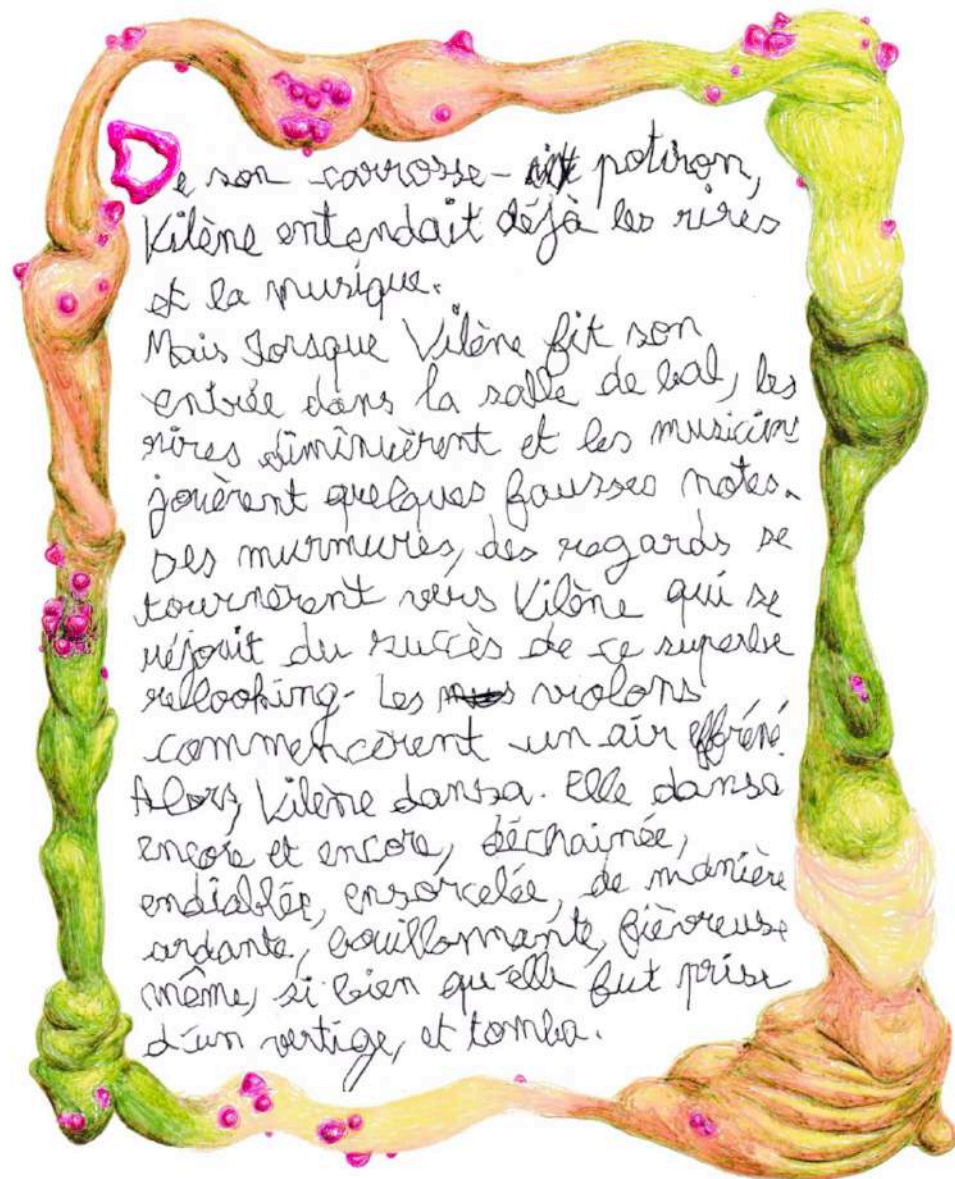 De son carrosse-potiron,
Vilène entendait déjà les rires
et la musique.
Mais lorsque Vilène fit son
entrée dans la salle de bal, les
rires diminuèrent et les musiciens
jouèrent quelques fausses notes.
Des murmures, des regards se
tournèrent vers Vilène qui se
réjouit du succès de ce superbe
rellooking. Les violons
commencèrent un air effréné.
Alors, Vilène dansa. Elle dansa
encore et encore, déchainée,
endiablée, ensorcelée, de manière
ardante, bouillonnante, fièvreuse
même, si bien qu'elle fut prise
d'un vertige, et tomba.